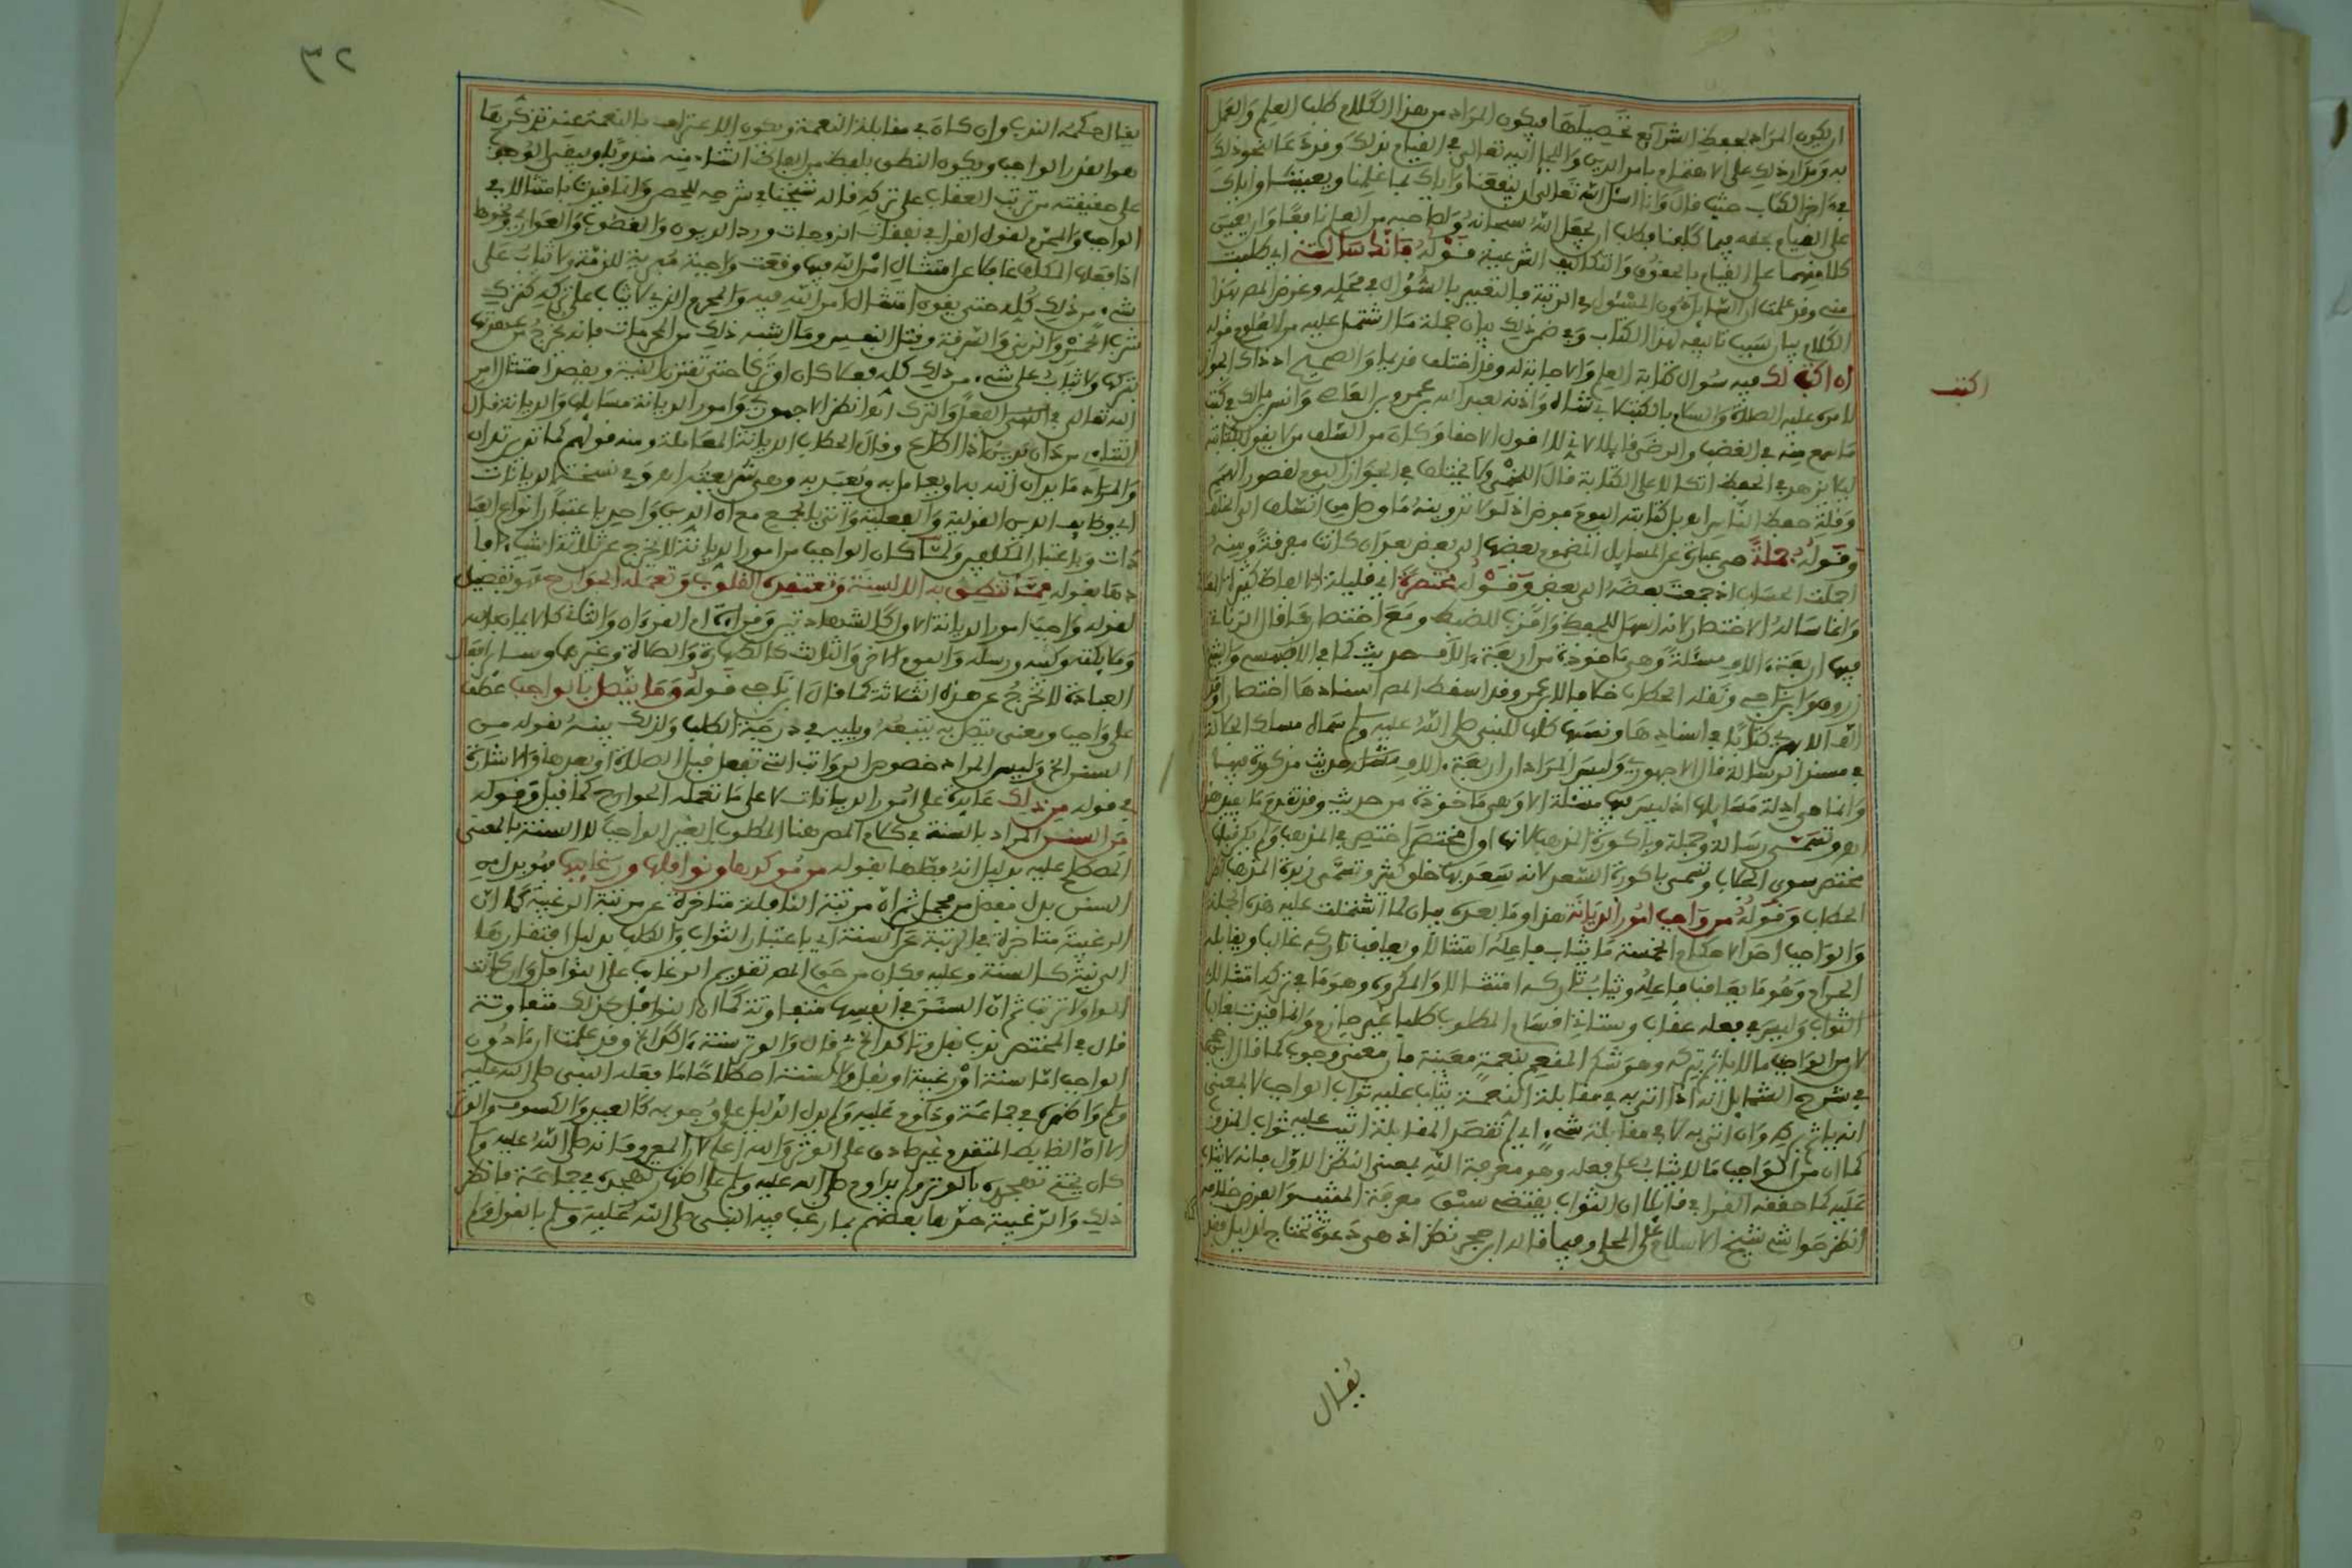 ان يكون المراد بحفظ الشرائع تحصيلها ويكون المراد من هذا الكلام طلب العلم والعمل
به ومدار ذلك على الاهتمام بامر الدين واللجإ اليه تعالى في القيام بذلك وقد دعا لنحو ذلك
في اخر الكتاب حيث قال وانا اسئل الله تعالى ان ينفعنا واياك بما علمنا ويعيننا واياك
على القيام بحقه فيما كلفنا فطلب ان يجعل الله سبحانه ولصاحبه من العلم نافعا وان يعين
كلا منهما على القيام بالحقوق والتكاليف الشرعية قوله فانك سألتني اي طلبت
مني وقد علمت ان السائل دون المسئول في الرتبة فالتعبير بالسؤال في محله وغرض المص بهذا
الكلام بيان سبب تاليفه لهذا الكتاب وفي ضمن ذلك بيان جملة ما اشتمل عليه من العلوم قوله
ان اكتب لك فيه سؤال كتابة العلم والاجابة له وقد اختلف قديما والصحيح اذ ذاك الجواز
لامره عليه الصلاة والسلام بالكتب لابي شاه واذنه لعبد الله بن عمرو بن العاص وانس بن مالك في كتب
ما سمع منه في الغضب والرضى قائلا لاني لا اقول الا حقا وكان من السلف من لا يقول بكتابته
ليلا يزهد في الحفظ اتكالا على الكتابة قال اللخمي ولا يختلف في الجواز اليوم لقصور الهمم
وقلة حفظ الناس اه بل كتابته اليوم فرض اذ لولا تدوينه ما وصل من السلف الى الخلف
وقوله جملة هي عبارة عن المسايل المضموم بعضها الى بعض بعد ان كانت مفرقة ومنه
اجملت الحساب اذ جمعت بعضه الى بعض وقوله مختصرة اي قليلة الالفاظ كثيرة المعاني
وانما ساله الاختصار لانه اسهل للحفظ واقرب للضبط ومع اختصارها قال الزناتي
فيها اربعة الاف مسئلة وهي ماخوذة من اربعة الاف حديث كما في الاقفهسي والشيخ
زروق وابن ناجي ونقله الحطاب خلافا لابن عمر وقد اسقط المص اسنادها اختصارا والف
الابهري كتابا في اسنادها ونصها كلها للنبي صلى الله عليه وسلم سماه مسلك الجلالة
في مسند الرسالة قال الاجهوري وليس المراد ان اربعة الاف حديث مذكورة فيها
وانما هي ادلة مسايلها اذ ليس فيها مسئلة الا وهي ماخوذة من حديث وقد تقدم ما يفيد هذا
اه وتسمى رسالة وجملة وباكورة المذهب لانها اول مختصر اختصر في المذهب ولم يكن قبلها
مختصر سوى الجلاب وتسمى باكورة السعد لانه سعد بها خلق كثير وتسمى زبدة المذهب
الحطاب وقوله من واجب امور الديانة هذا وما بعده بيان لما اشتملت عليه هذه الجملة
والواجب احد الاحكام الخمسة ما يثاب فاعله امتثالا ويعاقب تاركه غالبا ويقابله
الحرام وهو ما يعاقب فاعله ويثاب تاركه امتثالا والمكروه وهو ما في تركه امتثالا
الثواب وليس في فعله عقاب وستاتي اقسام المطلوب طلبا غير جازم وانما قيدت بغالبا
لان من الواجب ما لا ياثم بتركه وهو شكر المنعم بنعمة معينة فان معنى وجوبه كما قال ابن حجر
في شرح الشمايل انه اذا اتى به في مقابلة النعمة يثاب عليه ثواب الواجب لا بمعنى
انه ياثم بتركه وان اتى به لا في مقابلة شيء اي لم تقصد المقابلة اثيب عليه ثواب المندوب
كما ان من الواجب ما لا يثاب على فعله وهو معرفة الله بمعنى النظر الاول فانه لا ثواب
عليه كما حققه القرافي قايلا ان الثواب يقتضي سبق معرفة المثيب والفرض خلافه
انظر حواشي شيخ الاسلام على المحلي وفيما قاله ابن حجر نظر اذ هي دعوة تحتاج لدليل فقد
اكتب
يقال
٣٢
يقال حكمه الندب وان كان في مقابلة النعمة ويكون الاعتراف بالنعمة عند تذكرها
هو القدر الواجب ويكون النطق بلفظ من الفاظ الثناء منه مندوبا ويبقى الوجوب
على حقيقته من ترتب العقاب على تركه قاله شيخنا في شرحه للمحصر وانما قيدت بامتثالا في
الواجب والمحرم لقول القرافي نفقات الزوجات ورد الديون والغصوب والعواري ونحوها
اذا فعلها المكلف غافلا عن امتثال امر الله فيها وقعت واجبة مبرية للذمة ولا يثاب على
شيء من ذلك كله حتى ينوي امتثال امر الله فيه والمحرم الذي لا يثاب على تركه كترك
شرب الخمر والزنى والسرقة وقتل النفس وما اشبه ذلك من المحرمات فانه يخرج من عهدتها
بتركها ولا يثاب على شيء من ذلك كله فعلا كان او تركا حتى تقترن النية ويقصد امتثال امر
الله تعالى في الفعل والترك انظر الاجهوري وامور الديانة مسايلها والديانة قال
التتاءي من دان يدين اذا اطاع وقال الحطاب الديانة المعاملة ومنه قولهم كما تدين تدان
والمراد ما يدان الله به او يعامل به ويعبد به وهي شريعته اه وفي نسخة الديانات
اي وظايف الدين القولية والفعلية واتى بالجمع مع ان الدين واحد باعتبار انواع العبا
دات وباعتبار المكلفين ولما كان الواجب من امور الديانة لا يخرج عن ثلاثة اشياء افا
دها بقوله مما تنطق به الالسنة وتعتقده القلوب وتعمله الجوارح فهو تفصيل
لقوله واجب امور الديانة الاول كالشهادتين وقراءة ام القرءان والثاني كالايمان بالله
وملايكته وكتبه ورسله واليوم الاخر والثالث كالطهارة والصلاة وغيرها وساير افعال
العبادة لا تخرج عن هذه الثلاثة كما قال ابن ناجي قوله وما يتصل بالواجب عطف
على واجب ومعنى يتصل به يتبعه ويليه في درجة الطلب ولذلك بينه بقوله من
السنن الخ وليس المراد خصوص الرواتب التي تفعل قبل الصلاة او بعدها والاشارة
في قوله من ذلك عايدة على امور الديانات لا على ما تعمله الجوارح كما قيل وقوله
من السنن المراد بالسنة في كلام المص هنا المطلوب الغير الواجب لا السنة بالمعنى
المصطلح عليه بدليل انه فصلها بقوله من مؤكدها ونوافلها ورغايبها فهو بدل من
السنن بدل مفصل من مجمل ثم ان مرتبة النافلة متاخرة عن مرتبة الرغيبة كما ان
الرغيبة متاخرة في الرتبة عن السنة اي باعتبار الثواب والطلب بدليل افتقارها
الى نية كالسنة وعليه فكان من حق المص تقديم الرغايب على النوافل وان كانت
الواو لا ترتب ثم ان السنن في انفسها متفاوتة كما ان النوافل كذلك متفاوتة
قال في المختصر ندب نفل وتاكد الخ ثم قال والوتر سنة اكد الخ وقد علمت ان ما دون
الواجب اما سنة او رغيبة او نفل والسنة اصطلاحا ما فعله النبي صلى الله عليه
وسلم واظهره في جماعة وداوم عليه ولم يدل الدليل على وجوبه كالعيد والكسوف والوتر
الا ان الضابط المتقدم غير صادق على الوتر والله اعلم لان المعروف انه صلى الله عليه وسلم
كان يختم تهجده بالوتر ولم يداوم صلى الله عليه وسلم على اظهار تهجده في جماعة فانظر
ذلك والرغيبة حدها بعضهم بما رغب فيه النبي صلى الله عليه وسلم بالقول ولم